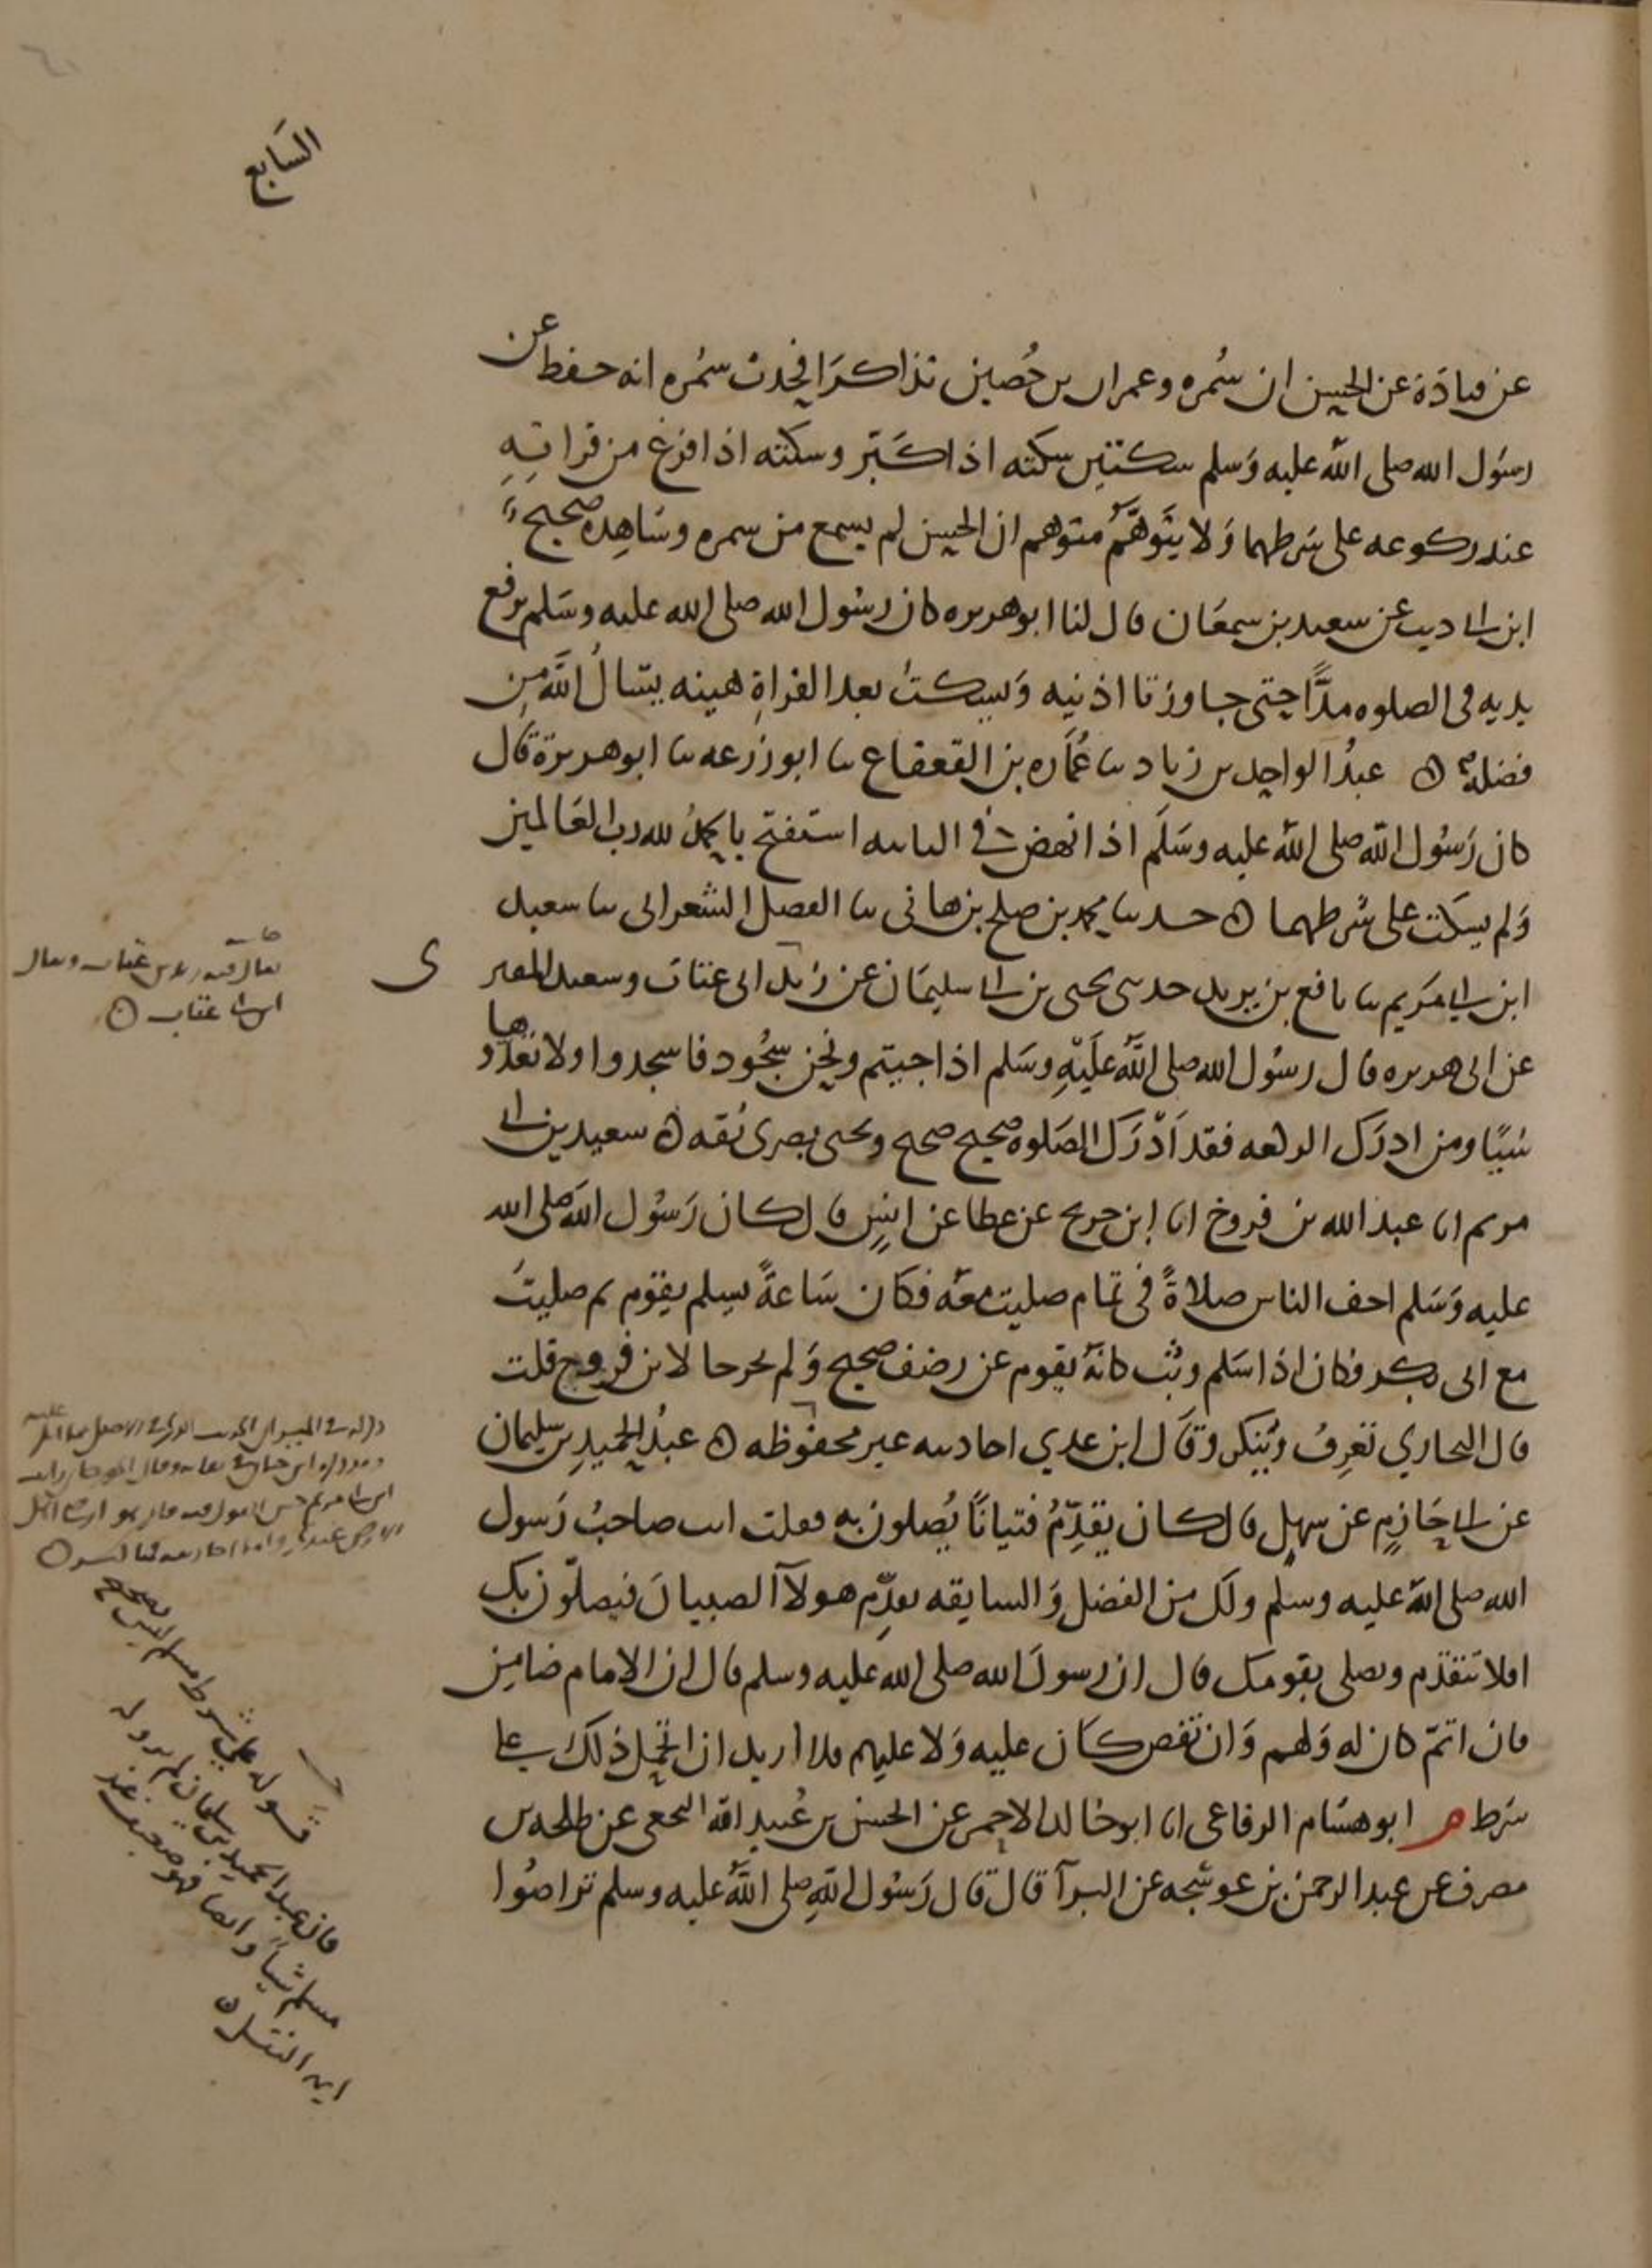 السَابع
عن قتادَة عن الحسن ان سُمره وعمران بن حُصين تذاكرَا فحدث سمُره انه حفظ عن
رسُول الله صلى الله عليه وَسلم سكتتين سكته اذا كَبّر وسكته اذا فرغ من قراتِهِ
عند ركوعه على شرطهما وَلا يتَوهَّمُ متوهم ان الحسن لم يسمع من سمره وشاهِده صحيح
ابن ابي ديب عن سعيد بن سمعَان قال لنا ابو هريره كان رسُول الله صلى الله عليه وسَلم يرفع
يديه في الصلوه مدًّا حتى جاوزتا اذنيه وَيسكتُ بعد القراةِ هينه يسَالُ اللهَ مِن
فضله ه عبدُ الواحد بن زياد ثنا عُمَاره بن القعقاع ثنا ابو زرعه ثنا ابو هريرة قال
كان رَسُول الله صلى الله عليه وسَلم اذا نهض في الثانيه استفتح بالحمدُ لله رب العَالمين
وَلم يسكت على شرطهما ه حدثنا محمد بن صلح بن هانى ثنا الفضل الشعرانى ثنا سعيد
ابن ابي مَريم ثنا نافع بن يزيد حدثنى يحيى بن ابي سليمَان عن زيد ابى عتاب وسعيد المقبرى
عن ابى هريره قال رسُول الله صلى اللهُ عليَهِ وسَلم اذا جيتم ونحن سجُود فاسجدوا ولا تعدّوها
شيًا ومن ادرَك الركعه فقد اَدْرَك الصَلوه صحيح صحيح ويحيى بصرى ثقه ه سعيد بن ابي
مريم انا عبد الله بن فروخ انا ابن جريح عن عطا عن انسٍ قال كان رَسُول الله صلى الله
عليه وَسَلم اخف الناس صلاةً فى تمام صليت معَه فكان سَاعةً يسلم يقوم ثم صليتُ
مع ابى بكر فكان اذا سَلم وثب كانهُ يقوم عن رضف صحيح وَلم يخرجا لابن فروخ قلت
قال البخاري تَعرِفُ وتُنكر وَقَال ابن عدي احاديثه غير محفُوظه ه عبدُ الحميدِ بن سليمان
عن ابي حَازمٍ عن سهلٍ قال كان يقدِّمُ فتيانًا يُصلون به فقلت انت صاحبُ رَسول
الله صلى الله عليه وسلم ولك من الفضل وَالسابقه تقدِّم هولآ الصبيان فيصلّون بك
افلا تتقدم وتصلى بقومك قال ان رسولَ الله صلى الله عليه وسلم قال ان الإمام ضامِن
فان اتمّ كان له وَلهم وَان نقص كان عليه وَلا عليهم فلا اريد ان اتحمل ذلك على
شرط م ابو هشام الرفاعى انا ابو خالد الاحمر عن الحسن بن عُبيد الله النخعى عن طلحه بن
مصرف عن عبد الرحمن بن عوسَجه عن البرآ قال قال رَسُول اللهِ صلى اللهُ عليه وسلم تراصُوا
يقال فيه زيد بن عتاب ويقال
ابن ابي عتاب ه
قوله على شرط مسلم ليس بصحيح
فان عبد الحميد بن سليمان لم يرو له
مسلم شياً وايضا فهو ضعيف عند
ايمه النقل ه